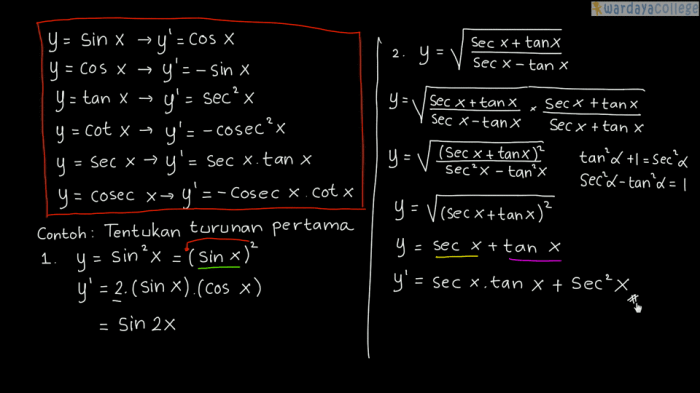 wardayacollege
y = sin x → y' = cos x
y = cos x → y' = -sin x
y = tan x → y' = sec² x
y = cot x → y' = -cosec² x
y = sec x → y' = sec x . tan x
y = cosec x → y' = -cosec x . cot x
Contoh : Tentukan turunan pertama
1. y = sin² x = (sin x)²
y' = 2 . (sin x) . (cos x)
= sin 2x
2. y = √((sec x + tan x)/(sec x - tan x))
y = √((sec x + tan x)/(sec x - tan x) × (sec x + tan x)/(sec x + tan x))
y = √((sec x + tan x)²/(sec² x - tan² x))
tan² α + 1 = sec² α
sec² α - tan² α = 1
y = √((sec x + tan x)²)
y = sec x + tan x
y' = sec x . tan x + sec² x